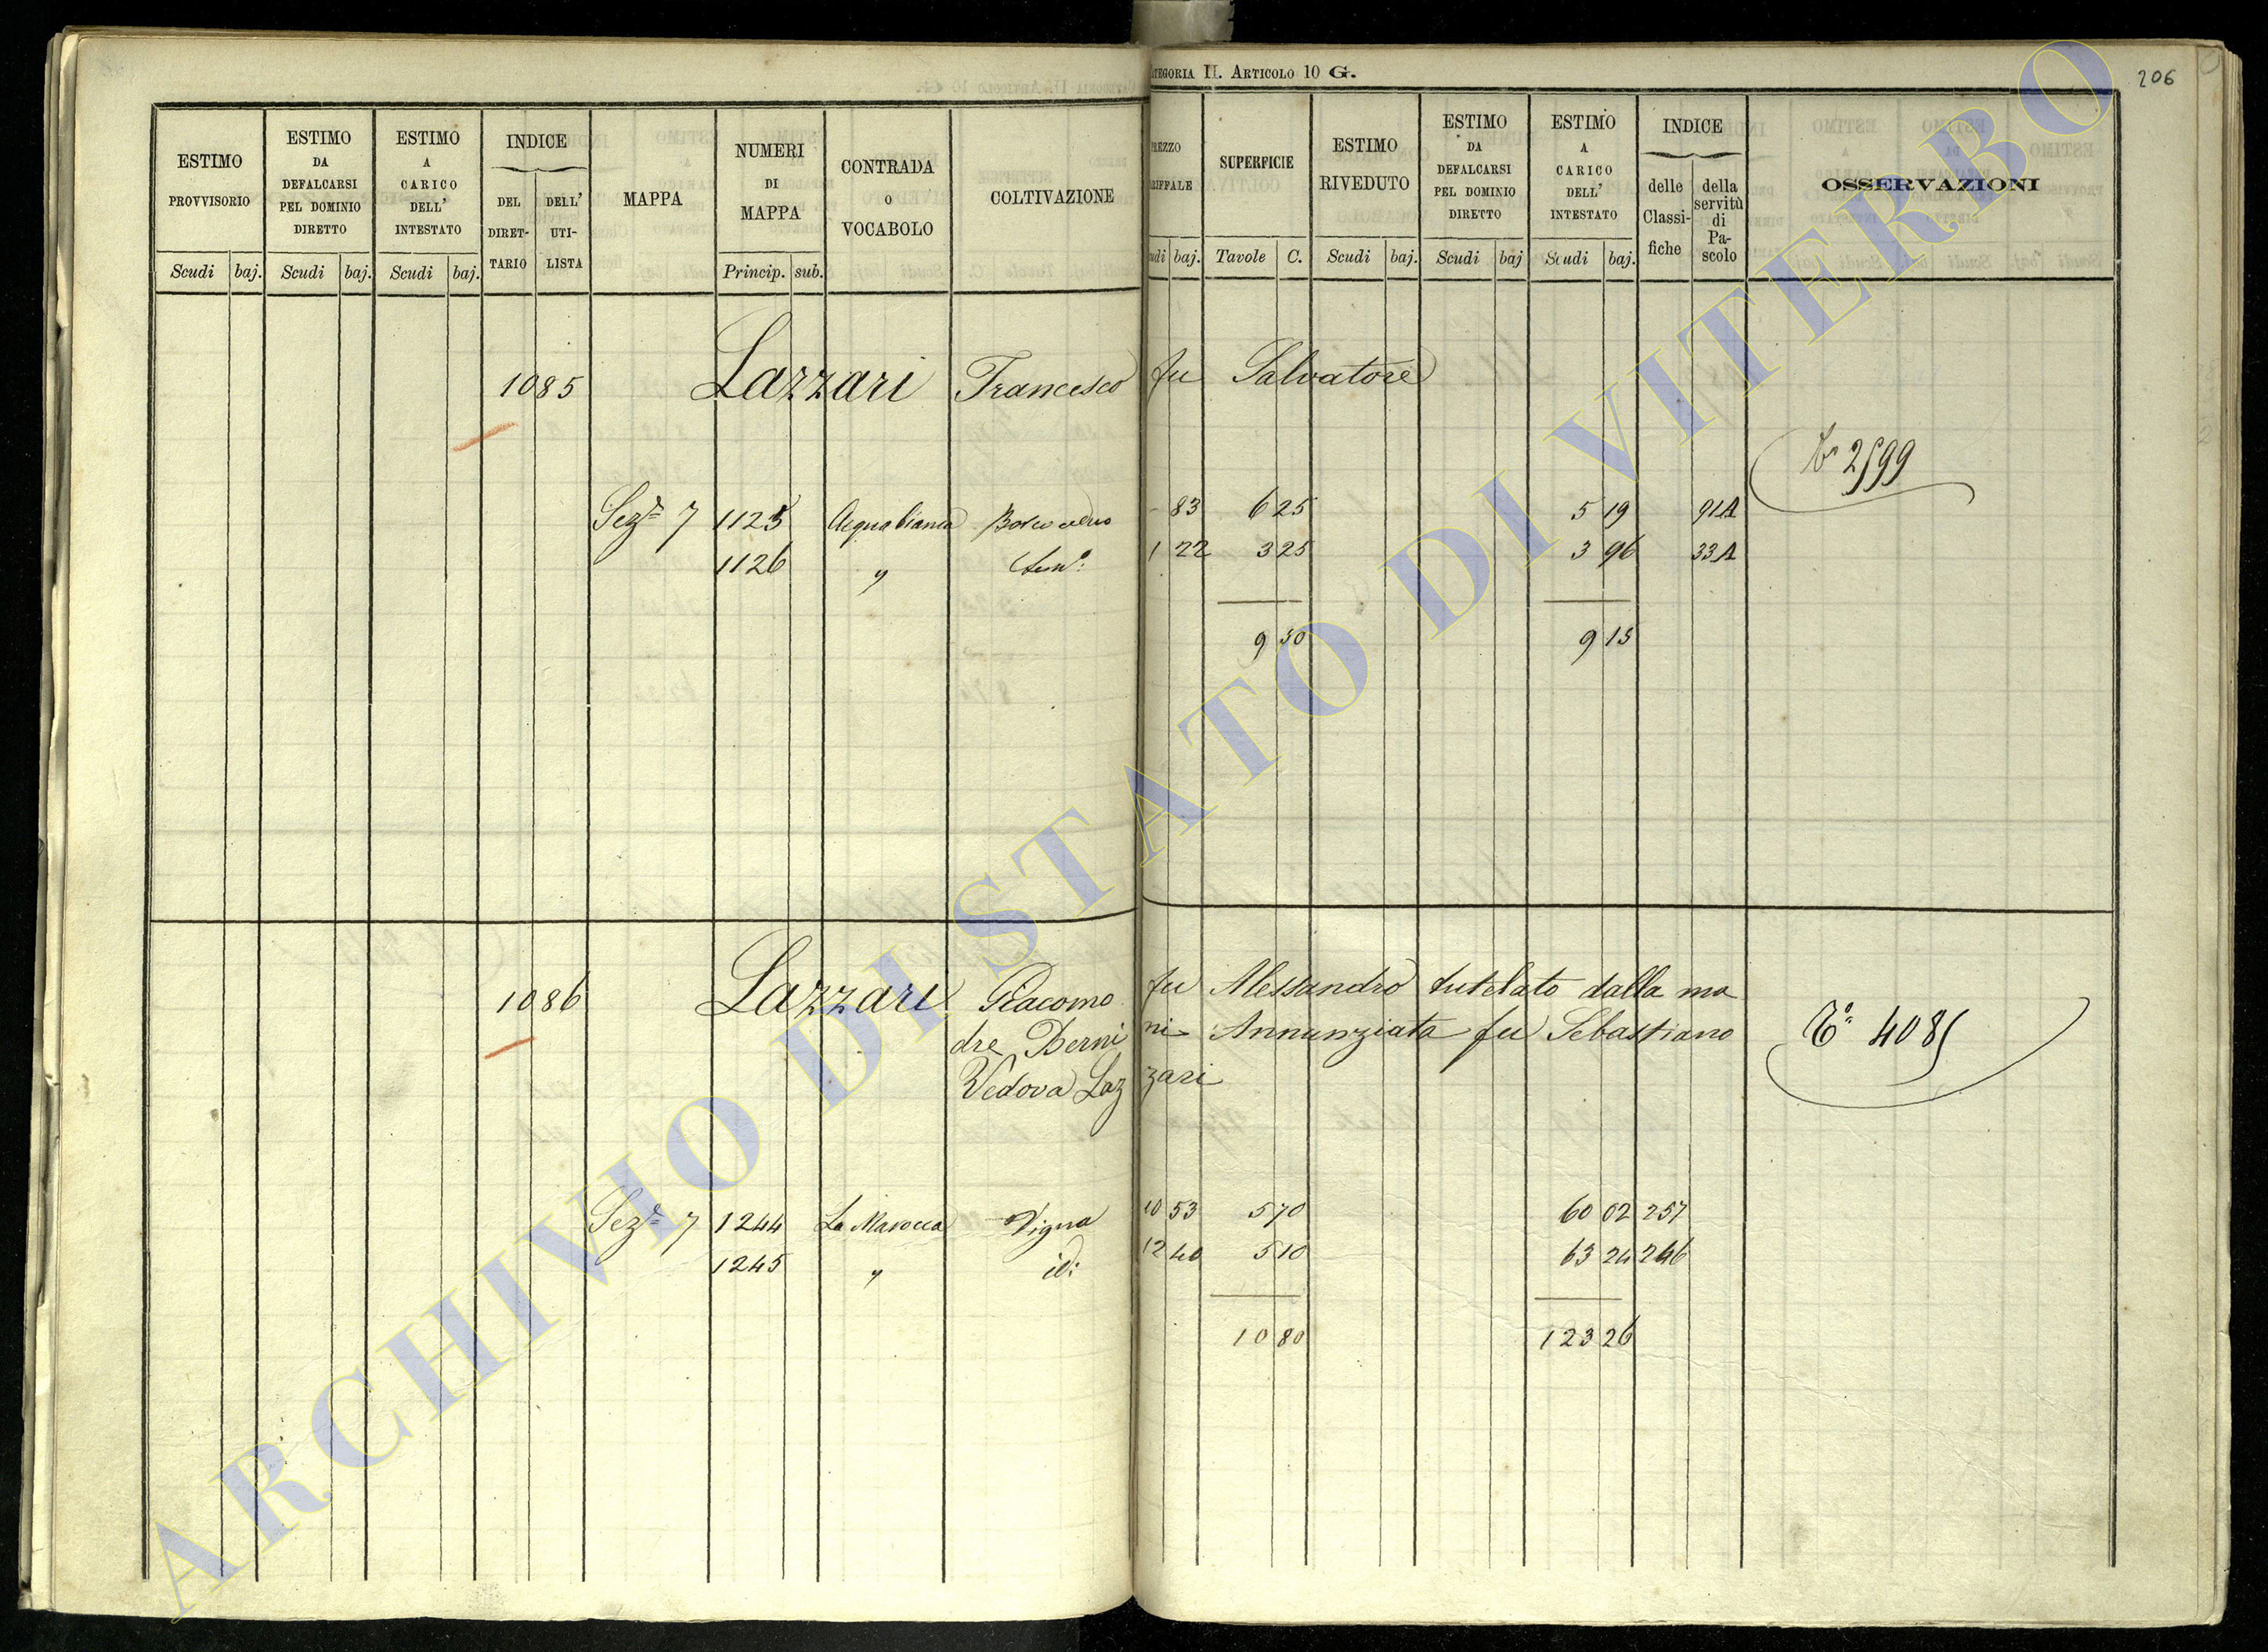 CATEGORIA II. ARTICOLO 10 G.
206
ESTIMO PROVVISORIO
Scudi baj.
ESTIMO DA DEFALCARSI PEL DOMINIO DIRETTO
Scudi baj.
ESTIMO A CARICO DELL' INTESTATO
Scudi baj.
INDICE
DEL DIRET-TARIO
DELL' UTI-LISTA
MAPPA
NUMERI DI MAPPA
Princip. sub.
CONTRADA O VOCABOLO
COLTIVAZIONE
SUPERFICIE
Tavole C.
ESTIMO RIVEDUTO
Scudi baj.
ESTIMO DA DEFALCARSI PEL DOMINIO DIRETTO
Scudi baj
ESTIMO A CARICO DELL' INTESTATO
Scudi baj.
INDICE
delle Classi-fiche
della servitù di Pa-scolo
OSSERVAZIONI
1085 Lazzari Francesco fu Salvatore
2599
Sezne 7 1125 Acquabianca Bosco ceduo 83 6 25 5 19 91A
1126 " Sem° 1 22 3 25 3 96 33A
9 50 9 15
1086 Lazzari Giacomo fu Alessandro tutelato dalla ma
dre Berni ni Annunziata fu Sebastiano
Vedova Laz zari
4085
Sezne 7 1244 La Marocca Vigna 10 53 5 70 60 02 257
1245 " id: 12 40 5 10 63 24 246
10 80 123 26
ARCHIVIO DI STATO DI VITERBO